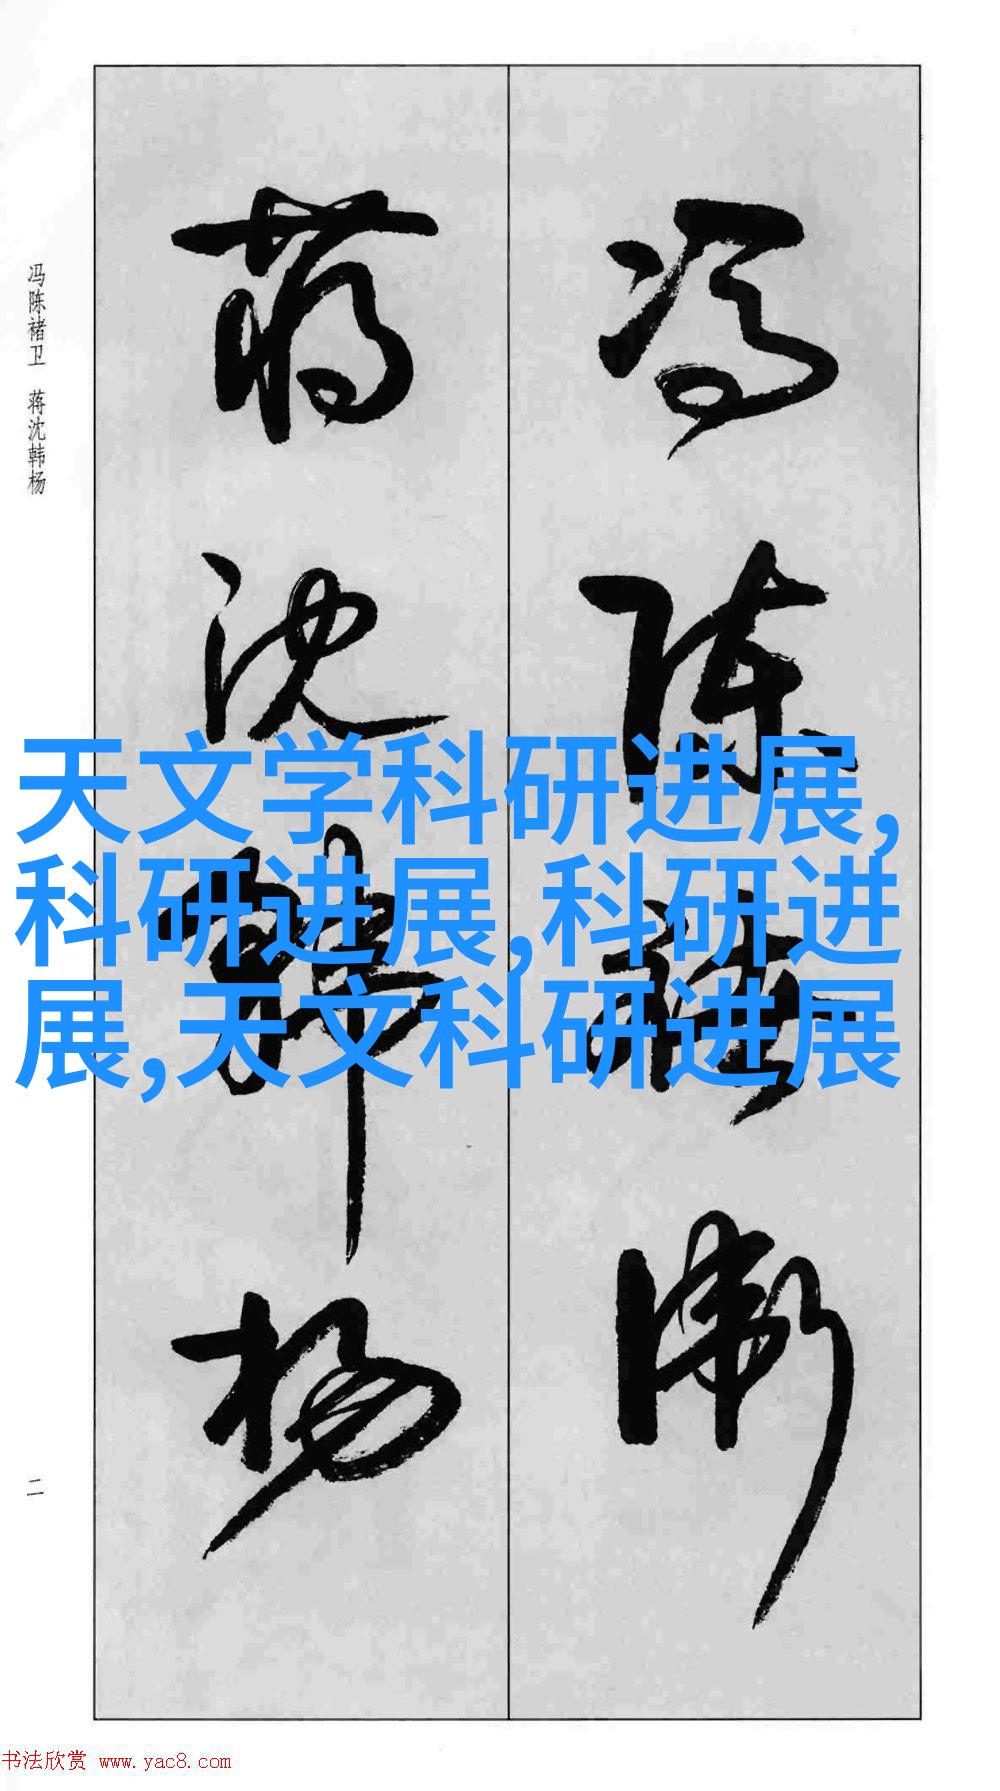 冯陈褚卫 蒋沈韩杨
冯陈褚卫
蒋沈韩杨
天文学科研进展,
科研进展,科研进
展,天文科研进展
二
书法欣赏 www.yac8.com